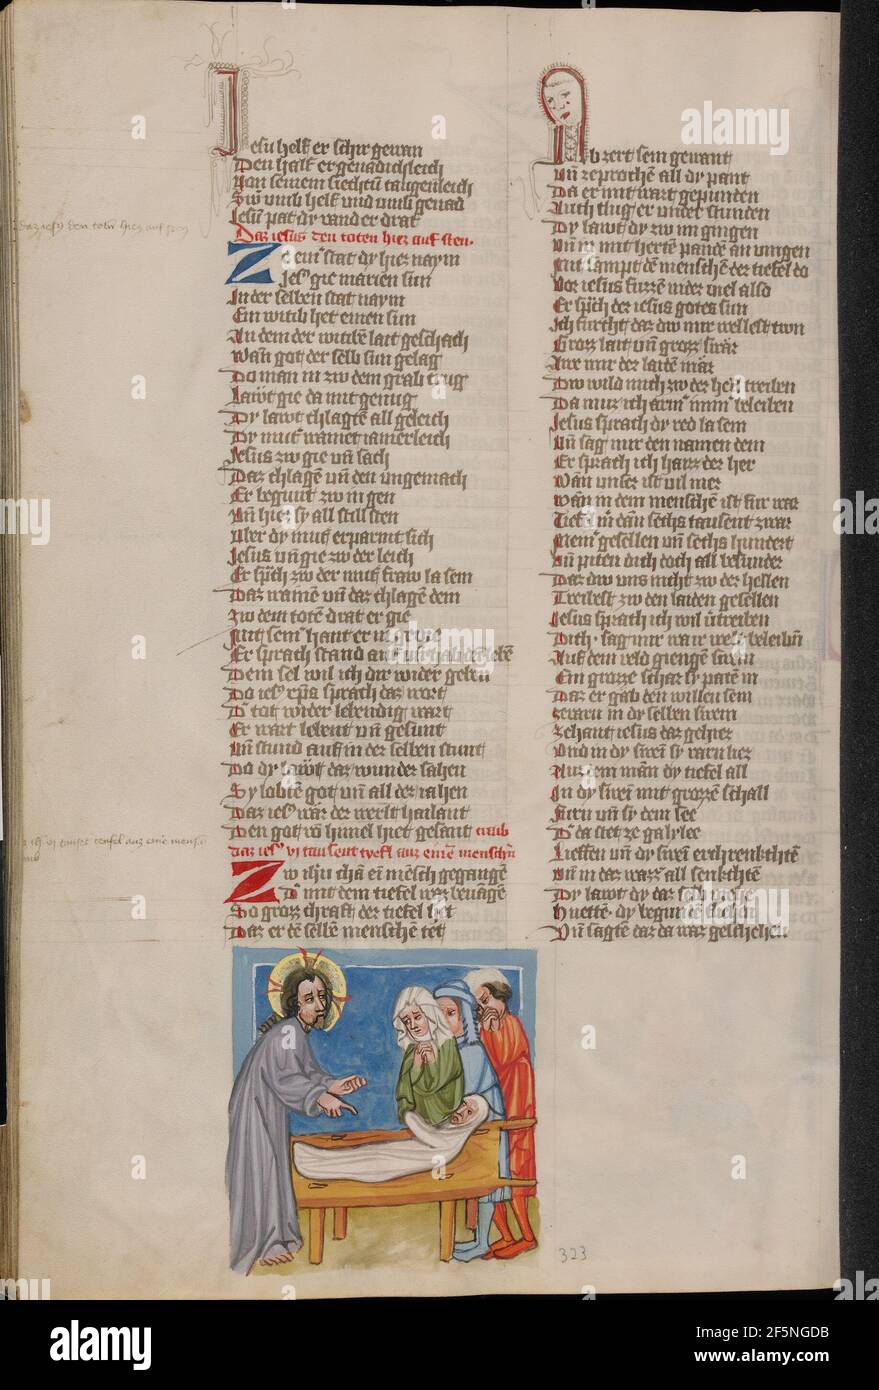 Jesu helf er schir gewan
Den half er genadichleich
Von seinem siechtū taugenleich
Sw̄ umb helf und umb genad
Jesū pat dy vand er drat
Daz iesus den toten hiez auf sten.
Ze einr stat dy hiez naym
Jes⁹ gie marien sun
In der selben stat naym
Ein witib het einen sun
An dem der witibē lait geschach
Wan̄ got der selb sun gelag
Do man in zw dem grab trug
Lawt gie da mit genug
Dy lawt chlagtē all geleich
Dy mut⁹ wainet iamerleich
Jesus zw gie vn̄ sach
Daz chlagē vn̄ den ungemach
Er begunt zw in gen
Vn̄ hiez sy all still sten
Uber dy mut⁹ erparmt sich
Jesus vn̄ gie zw der leich
Er sp̄ch zw der mut⁹ fraw la sein
Daz wainē vn̄ daz chlagē dein
Zw dem totē drat er gie
Mit seinr hant er in
Er sprach stand auf
Dein sel wil ich dir wider geben
Do ies⁹ xp̄s sprach daz wort
Dr tot wider lebendig wart
Er wart lebent vn̄ gesunt
Vn̄ stund auf in der selben stunt
Do dy lawt daz wunder sahen
Sy lobtē got vn̄ all der iahen
Daz ies⁹ wār der werlt hailant
Den got vō himel hiet gesant
daz ies⁹ vi tausent tyefl auz einē mensch̄n
Zw ihū chā ei mēsch gegangē
Dr mit dem tiefel waz bevāgē
So grozz chraft der tiefel het
Daz er dē selbē menschē tet
Er zert sein gewant
Vn̄ zeprochē all dy pant
Da er mit wart gepunden
Auch slug er under stunden
Dy lawt dy zw im gingen
Vn̄ in mit hertē pandē an vingen
Mit sampt dē menschē der tiefel do
Vor iesus furzē nider viel also
Er sp̄ch der iesus gotes sun
Ich furcht daz dw mir wellest twn
Grozz lait vn̄ grozz swār
Awe mir der laidē mār
Dw wild mich zw der hell treiben
Da muz ich armr imm⁹ beleiben
Jesus sprach dy red la sein
Vn̄ sag mir den namen dein
Er sprach ich haiz der her
Wan̄ unser ist vil mer
Wan̄ in dem menschē ist fur war
Tiefel mr dan̄ sechs tausent zwar
Meinr gesellen vn̄ sechs hundert
Vn̄ piten dich doch all besunder
Daz dw uns nicht zw der hellen
Treibest zw den laiden gesellen
Jesus sprach ich wil
Dich. sag mir wa ir welt beleibn̄
Auf dem veld giengē swein
Ein grozze schar sy patē in
Daz er gab den willen sein
Zefarn in dy selben swein
Zehant iesus daz gehiez
Vnd in dy swei sy varn liez
Auz dem man̄ dy tiefel all
In dy swei mit grozzē schall
Furn vn̄ sy dem see
Dr da leit ze galylee
Lieffen vn̄ dy swei erchrenkchtē
Vn̄ in daz wazz⁹ all senkchtē
Dy lawt dy daz
Huettē. dy begundē
Vn̄ sagtē daz da waz geschehen
323
alamy
Image ID: 2F5NGDB
www.alamy.com